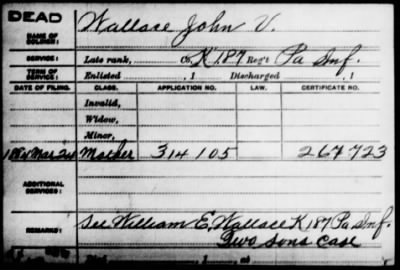 DEAD
NAME OF SOLDIER: Wallace John V.
SERVICE: Late rank, Co. K 187 Reg't Pa Inf.
TERM OF SERVICE: Enlisted , 1 Discharged , 1
DATE OF FILING. CLASS. APPLICATION NO. LAW. CERTIFICATE NO.
Invalid,
Widow,
Minor,
1884 Mar 24 Mother 314 105 267723
ADDITIONAL SERVICES:
REMARKS: See William E. Wallace K 187 Pa Inf.
Two sons case